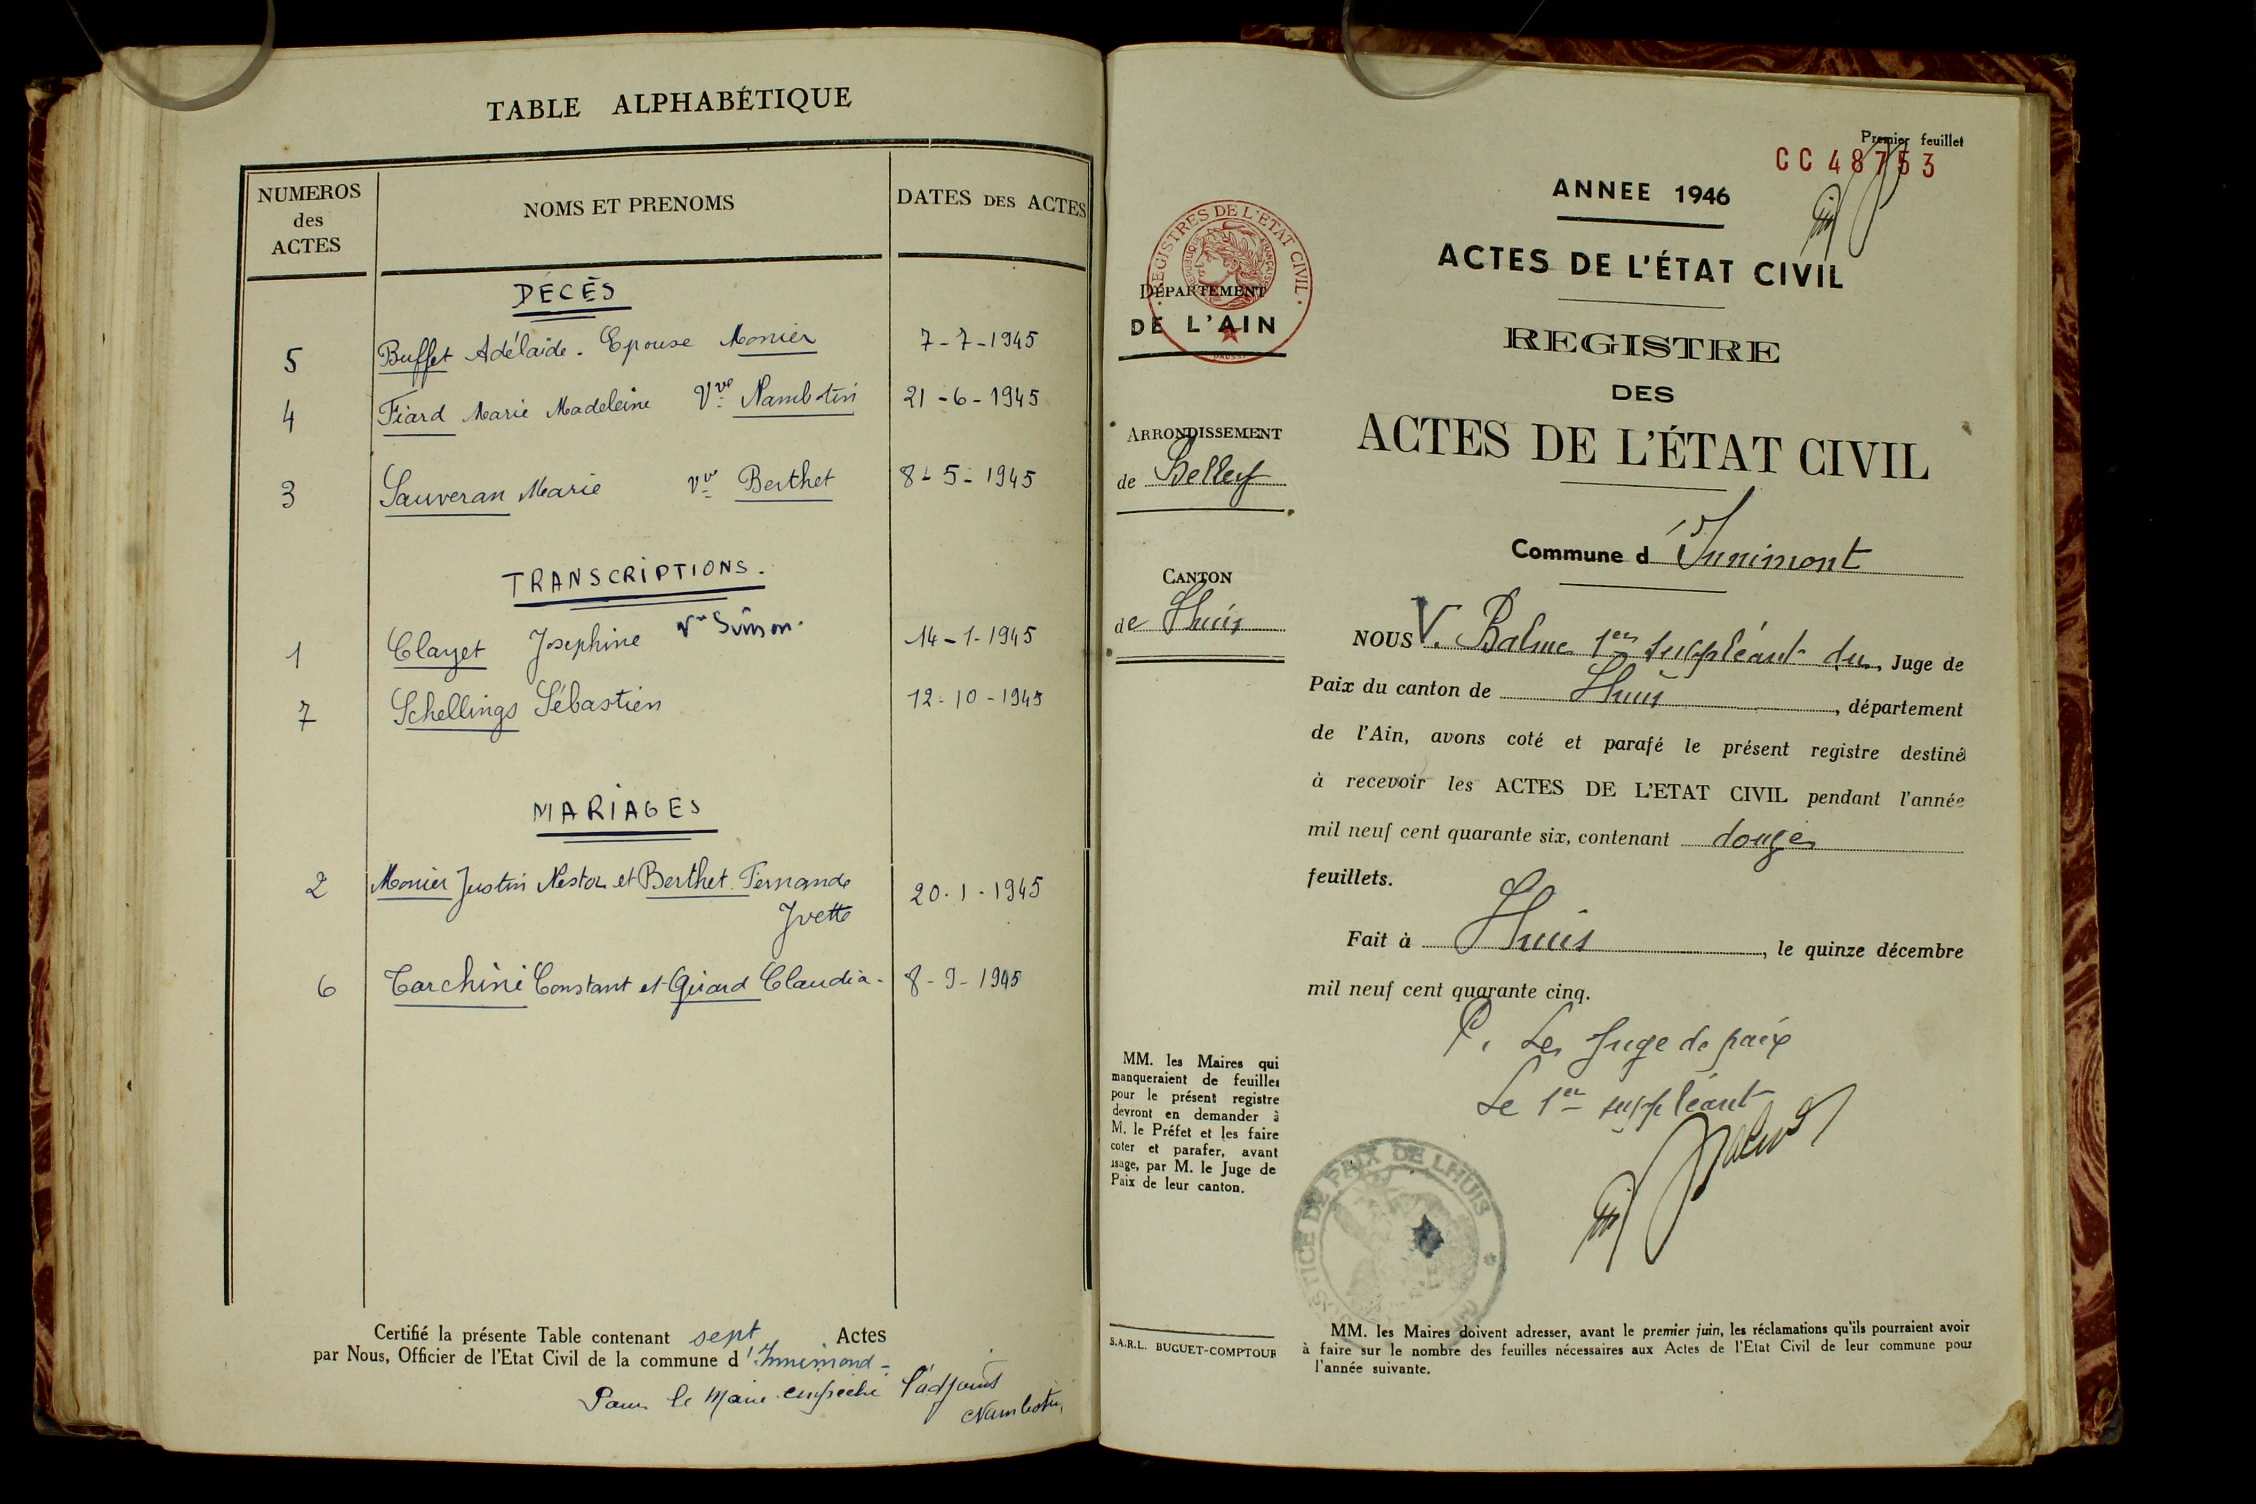 TABLE ALPHABÉTIQUE
NUMEROS
des
ACTES
NOMS ET PRENOMS
DATES DES ACTES
DÉCÈS
5 Buffet Adélaïde. Epouse Monier 7-7-1945
4 Fiard Marie Madeleine Vve Nambotin 21-6-1945
3 Sauveran Marie Vve Berthet 8-5-1945
TRANSCRIPTIONS.
1 Clayet Josephine Vve 14-1-1945
7 Schellings Sébastien 12-10-1945
MARIAGES
2 Monier Justin Nestor et Berthet Fernande 20-1-1945
Yvette
6 Tarchini Constant et Girard Claudia- 8-9-1945
Certifié la présente Table contenant sept Actes
par Nous, Officier de l'Etat Civil de la commune d'Innimond-
Pour le Maire empêché l'adjoint
Nambotin
Premier feuillet
CC 48753
ANNEE 1946
ACTES DE L'ÉTAT CIVIL
REGISTRE
DES
ACTES DE L'ÉTAT CIVIL
REGISTRES DE L'ETAT CIVIL
DÉPARTEMENT
DE L'AIN
ARRONDISSEMENT
de Belley
CANTON
de Lhuis
Commune d'Innimont
NOUS V. Balme 1er suppléant du, Juge de
Paix du canton de Lhuis, département
de l'Ain, avons coté et parafé le présent registre destiné
à recevoir les ACTES DE L'ETAT CIVIL pendant l'année
mil neuf cent quarante six, contenant douze
feuillets.
Fait à Lhuis, le quinze décembre
mil neuf cent quarante cinq.
P. Le Juge de paix
Le 1er suppléant
Balme
JUSTICE DE PAIX DE LHUIS
MM. les Maires qui
manqueraient de feuilles
pour le présent registre
devront en demander à
M. le Préfet et les faire
coter et parafer, avant
usage, par M. le Juge de
Paix de leur canton.
S.A.R.L. BUGUET-COMPTOUR
MM. les Maires doivent adresser, avant le premier juin, les réclamations qu'ils pourraient avoir
à faire sur le nombre des feuilles nécessaires aux Actes de l'Etat Civil de leur commune pour
l'année suivante.